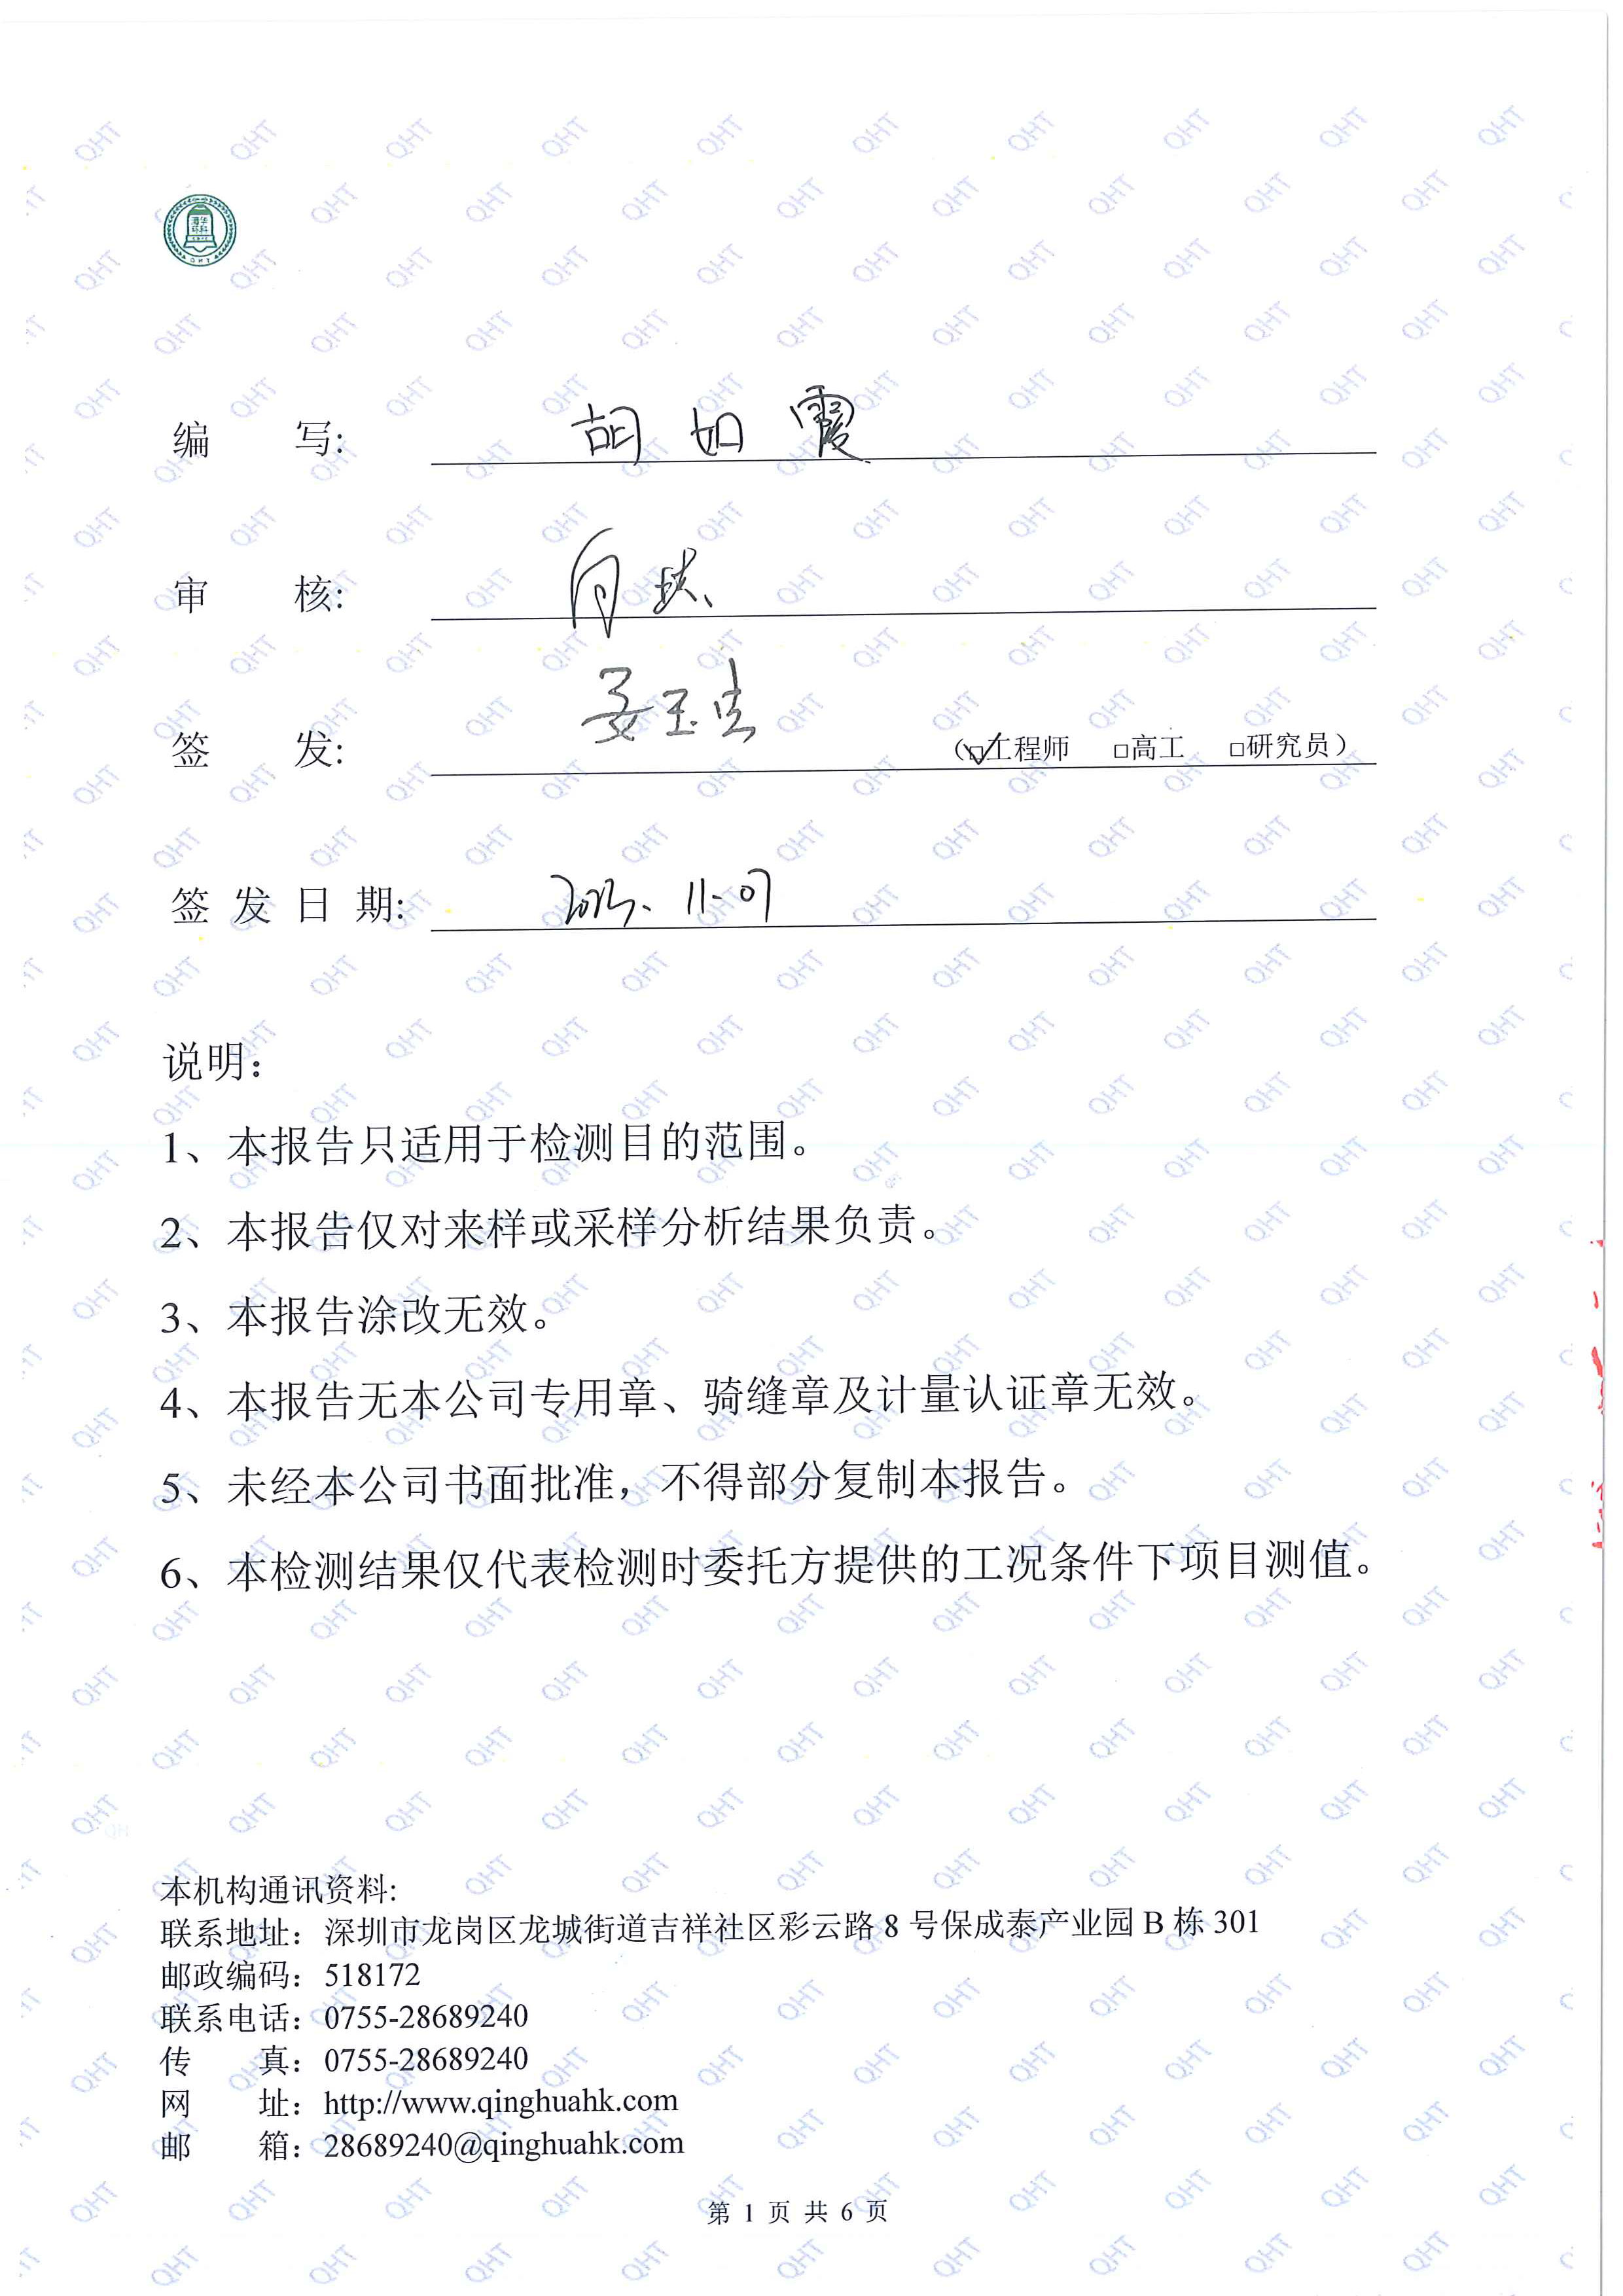 清华
环科
QHT
编 写: 胡如霞
审 核: 向
签 发: 姜玉 (☑工程师 □高工 □研究员)
签 发 日 期: 11-07
说明：
1、本报告只适用于检测目的范围。
2、本报告仅对来样或采样分析结果负责。
3、本报告涂改无效。
4、本报告无本公司专用章、骑缝章及计量认证章无效。
5、未经本公司书面批准，不得部分复制本报告。
6、本检测结果仅代表检测时委托方提供的工况条件下项目测值。
本机构通讯资料:
联系地址：深圳市龙岗区龙城街道吉祥社区彩云路 8 号保成泰产业园 B 栋 301
邮政编码：518172
联系电话：0755-28689240
传 真：0755-28689240
网 址：http://www.qinghuahk.com
邮 箱：28689240@qinghuahk.com
第 1 页 共 6 页